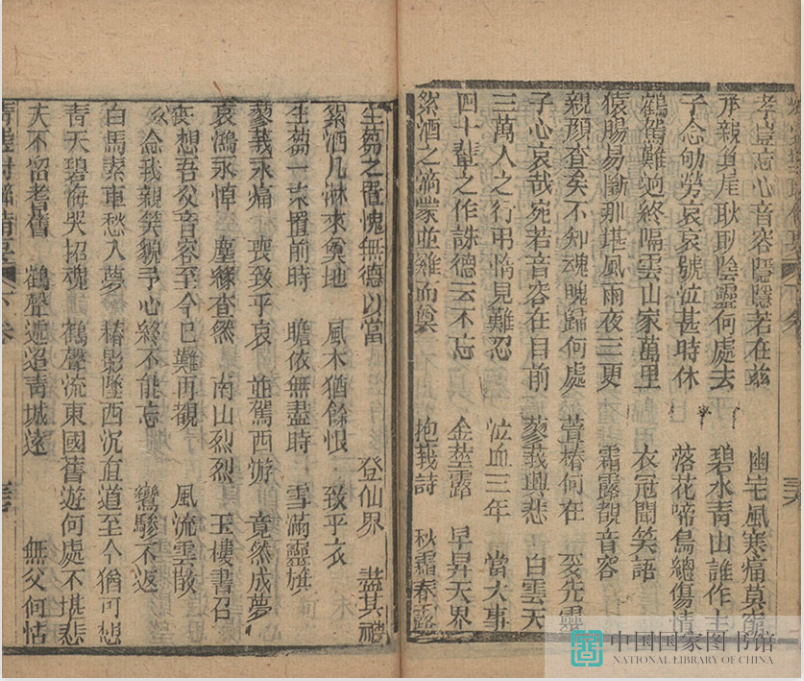 孝豈忘心音容隱隱若在玆 幽宅風寒痛莫窮
承親眞屋耿耿陰靈何處去 碧水青山誰作主
子念劬勞哀哀號泣甚時休 落花啼鳥總傷情
鶴駕難追終隔雲山家萬里 衣冠聞笑語
猿腸易斷那堪風雨夜三更 霜露覩音容
親顏杳矣不知魂魄歸何處 萱椿何在 妥先靈
子心哀哉宛若音容在目前 蓼莪興悲 白雲天
三萬人之行弔惰見難忍 泣血三年 當大事
四十輩之作誄德云不忘 金莖露 早昇天界
絮酒之滴蒙並雞而奠 抱莪詩 秋霜春露
生芻之置愧無德以當 登仙界 盡其禮
絮酒几淋來奠地 風木猶餘恨 致乎衣
生芻一束置前時 瞻依無盡時 雪滿靈旗
蓼莪永痛 喪致乎哀 並駕西游 竟然成夢
哀鴻永悼 塵緣杳然 南山烈烈 玉樓書召
想吾父音容至今已難再觀 風流雲散
念我親笑貌予心終不能忘 鸞驂不返
白馬素車愁入夢 椿影墜西沉直道至今猶可想
青天碧海哭招魂 鶴聲流東國舊遊何處不堪悲
天不留耆舊 鶴聲遞迢青城遠 無父何怙
下卷
中国国家图书馆
NATIONAL LIBRARY OF CHINA